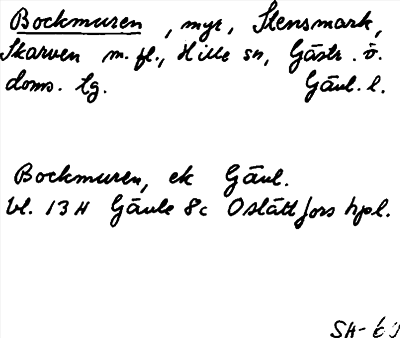 Bockmuren, myr, Stensmark,
Skarven m. fl., Hille sn, Gästr. ö.
doms. lg. Gävl. l.
Bockmuren, ek Gävl.
bl. 13 H Gävle 8c Oslättfors hpl.
SH-63